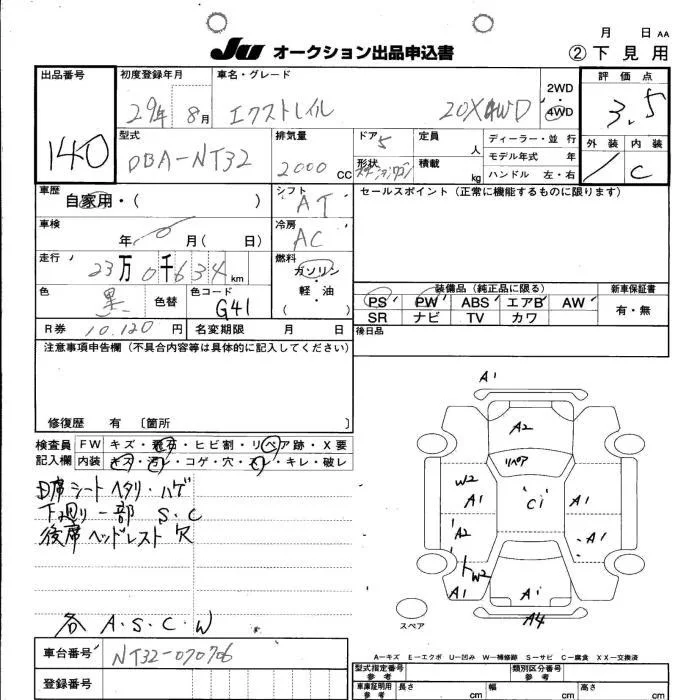 月 日 AA
JU オークション出品申込書 ②下見用
出品番号 初度登録年月 車名・グレード 2WD 評価点
140 29年 8月 エクストレイル 20X4WD 4WD 3.5
型式 排気量 ドア 5 定員 人 ディーラー・並 行 外装 内装
DBA-NT32 2000cc 形状 積載 kg モデル年式 年 / C
ハンドル 左・右
車歴 自家用・( ) シフト AT セールスポイント(正常に機能するものに限ります)
車検 年 月( 日) 冷房 AC
走行 23万0千634km 燃料 ガソリン 軽・油 ( )
色 黒 色替 色コード G41
装備品(純正品に限る) 新車保証書
PS PW ABS エアB AW 有・無
SR ナビ TV カワ
R券 10,120円 名変期限 月 日 後日品
注意事項申告欄(不具合内容等は具体的に記入してください)
修復歴 有 〔箇所 〕
検査員 FW キズ・飛石・ヒビ割・リペア跡・X要
記入欄 内装 キズ・汚レ・コゲ・穴・スレ・キレ・破レ
D席シートヘタリ・ハゲ
下廻り一部 S.C
後席ヘッドレスト欠
各 A.S.C.W
A1
A2
リペア
W2
A1 C1 A1
A2 A1
W2
A1 A1
A4
スペア
A-キズ E-エクボ U-凹み W-補修跡 S-サビ C-腐食 XX-交換済
車台番号 NT32-070706
登録番号
型式指定番号 参考 類別区分番号 参考
車庫証明用 参考 長さ cm 幅 cm 高さ cm